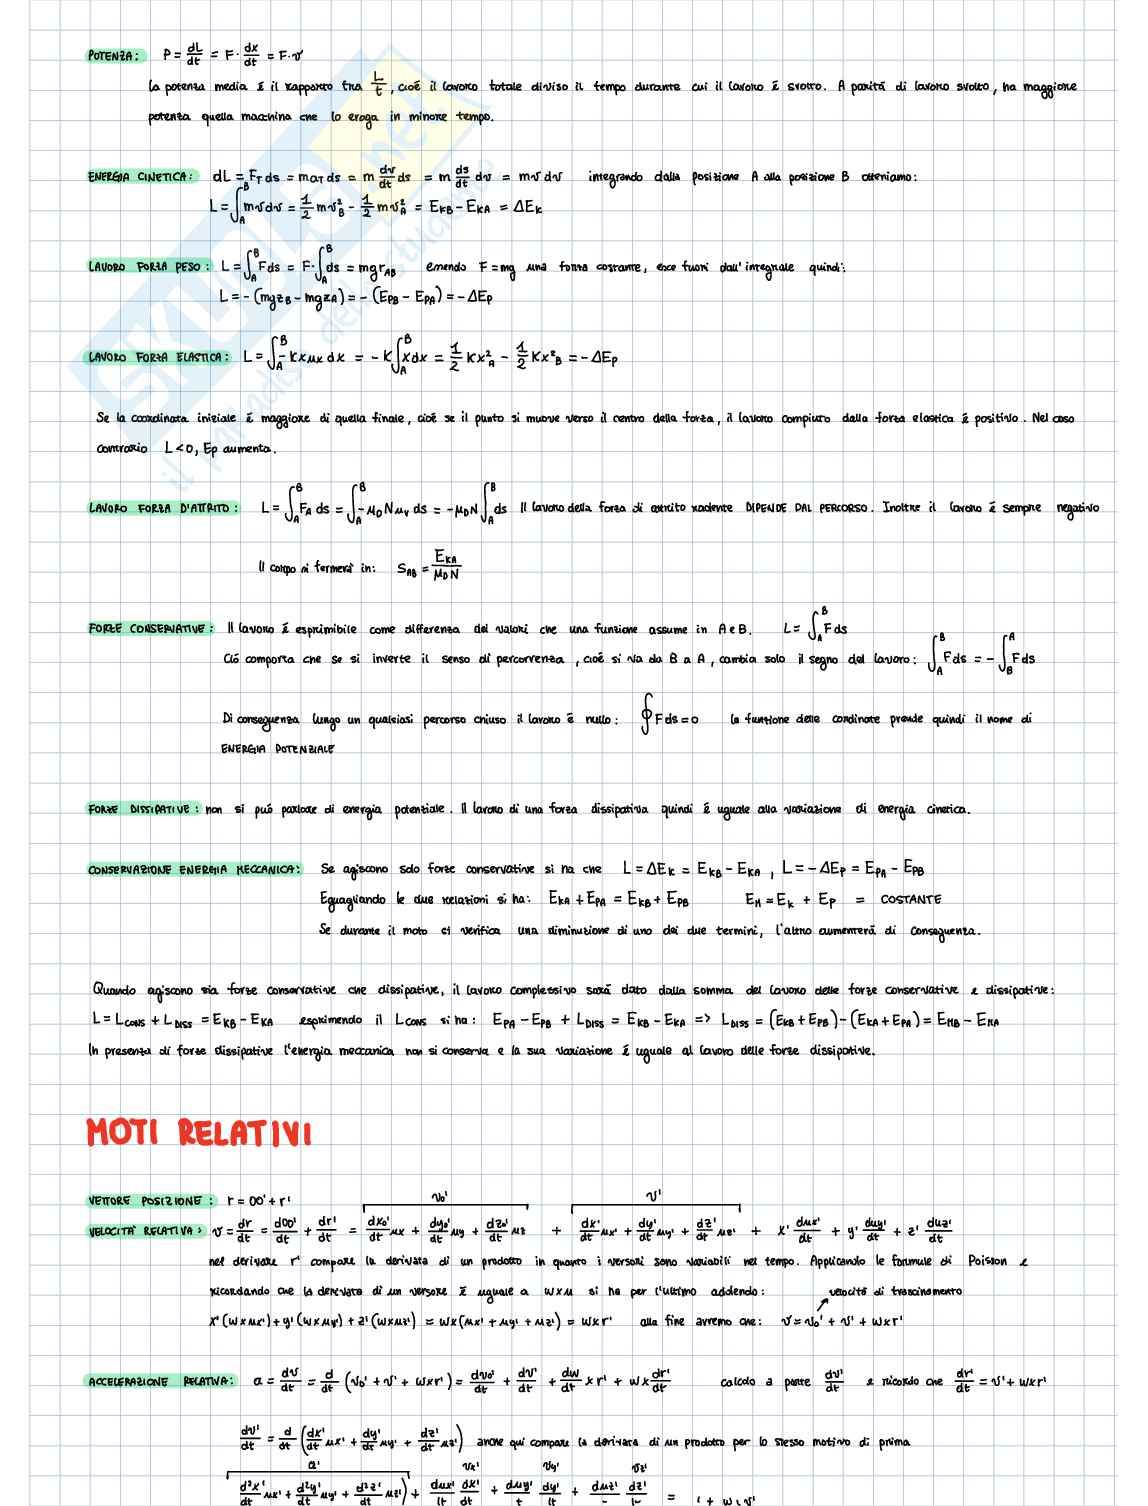 POTENZA: P = dL/dt = F · dx/dt = F · v
La potenza media é il rapporto tra L/t, cioé il lavoro totale diviso il tempo durante cui il lavoro é svolto. A paritá di lavoro svolto, ha maggiore
potenza quella macchina che lo eroga in minore tempo.
ENERGIA CINETICA: dL = F_T ds = ma_T ds = m dv/dt ds = m ds/dt dv = mv dv integrando dalla posizione A alla posizione B otteniamo:
L = ∫_A^B mv dv = 1/2 mv²_B - 1/2 mv²_A = E_KB - E_KA = ΔE_K
LAVORO FORZA PESO: L = ∫_A^B F ds = F · ∫_A^B ds = mg r_AB essendo F = mg una forza costante, esce fuori dall'integrale quindi:
L = - (mgz_B - mgz_A) = - (E_PB - E_PA) = - ΔE_P
LAVORO FORZA ELASTICA: L = ∫_A^B -Kx μx dx = -K ∫_A^B x dx = 1/2 Kx²_A - 1/2 Kx²_B = - ΔE_P
Se la coordinata iniziale é maggiore di quella finale, cioé se il punto si muove verso il centro della forza, il lavoro compiuto dalla forza elastica é positivo. Nel caso
contrario L < 0, Ep aumenta.
LAVORO FORZA D'ATTRITO: L = ∫_A^B F_A ds = ∫_A^B -μ_D N μ_v ds = -μ_D N ∫_A^B ds Il lavoro della forza di attrito radente DIPENDE DAL PERCORSO. Inoltre il lavoro é sempre negativo
Il corpo si fermerá in: S_AB = E_KA / μ_D N
FORZE CONSERVATIVE: Il lavoro é esprimibile come differenza dei valori che una funzione assume in A e B. L = ∫_A^B F ds
Ció comporta che se si inverte il senso di percorrenza, cioé si va da B a A, cambia solo il segno del lavoro: ∫_A^B F ds = - ∫_B^A F ds
Di conseguenza lungo un qualsiasi percorso chiuso il lavoro é nullo: ∮ F ds = 0 la funzione delle cordinate prende quindi il nome di
ENERGIA POTENZIALE
FORZE DISSIPATIVE: non si puó parlare di energia potenziale. Il lavoro di una forza dissipativa quindi é uguale alla variazione di energia cinetica.
CONSERVAZIONE ENERGIA MECCANICA: Se agiscono solo forze conservative si ha che L = ΔE_K = E_KB - E_KA, L = - ΔE_P = E_PA - E_PB
Eguagliando le due relazioni si ha: E_KA + E_PA = E_KB + E_PB E_M = E_K + E_P = COSTANTE
Se durante il moto ci verifica una diminuzione di uno dei due termini, l'altro aumenterá di conseguenza.
Quando agiscono sia forze conservative che dissipative, il lavoro complessivo sará dato dalla somma del lavoro delle forze conservative e dissipative:
L = L_CONS + L_DISS = E_KB - E_KA esprimendo il L_CONS si ha: E_PA - E_PB + L_DISS = E_KB - E_KA => L_DISS = (E_KB + E_PB) - (E_KA + E_PA) = E_MB - E_MA
In presenza di forze dissipative l'energia meccanica non si conserva e la sua variazione é uguale al lavoro delle forze dissipative.
MOTI RELATIVI
VETTORE POSIZIONE: r = OO' + r'
v_o' v'
VELOCITÁ RELATIVA: v = dr/dt = dOO'/dt + dr'/dt = dx_o'/dt μx + dy_o'/dt μy + dz_o'/dt μz + dx'/dt μx' + dy'/dt μy' + dz'/dt μz' + x' dμx'/dt + y' dμy'/dt + z' dμz'/dt
nel derivare r' compare la derivata di un prodotto in quanto i versori sono variabili nel tempo. Applicando le formule di Poisson e
ricordando che la derivata di un versore é uguale a w x μ si ha per l'ultimo addendo: velocitá di trascinamento
x'(w x μx') + y'(w x μy') + z'(w x μz') = w x (μx' + μy' + μz') = w x r' alla fine avremo che: v = v_o' + v' + w x r'
ACCELERAZIONE RELATIVA: a = dv/dt = d/dt (v_o' + v' + w x r') = dv_o'/dt + dv'/dt + dw/dt x r' + w x dr'/dt calcolo a parte dv'/dt e ricordo che dr'/dt = v' + w x r'
dv'/dt = d/dt (dx'/dt μx' + dy'/dt μy' + dz'/dt μz') anche qui compare la derivata di un prodotto per lo stesso motivo di prima
a' vx' vy' vz'
d²x'/dt μx' + d²y'/dt μy' + d²z'/dt μz') + dμx' dx'/dt + dμy' dy'/dt + dμz' dz' =